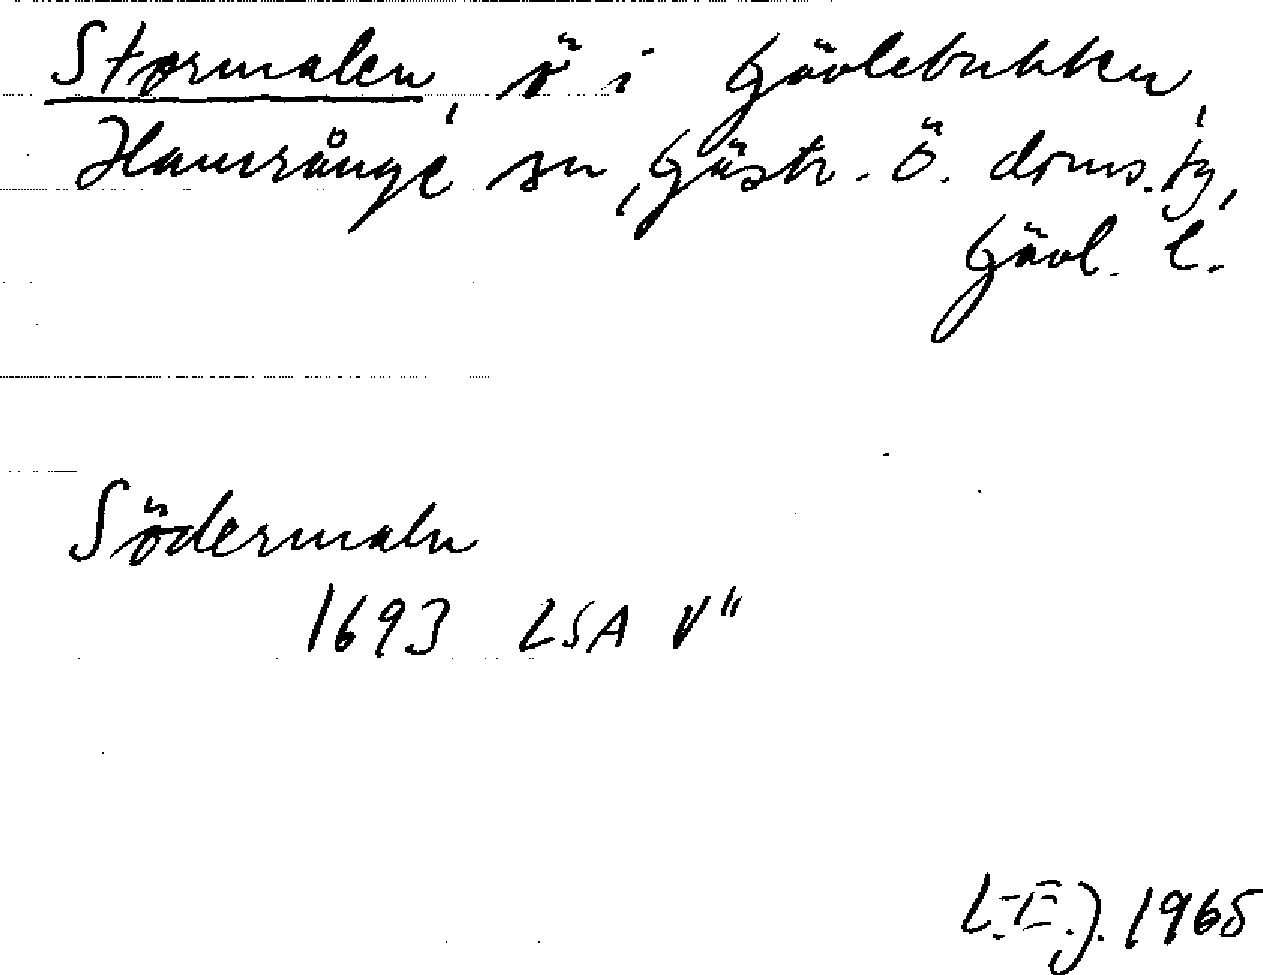 Stormalen, ö i Gävlebukten,
Hamrånge sn, Gästr. Ö. doms. tg,
Gävl. l.
Södermaln
1693 LSA V"
L.-E.J. 1965